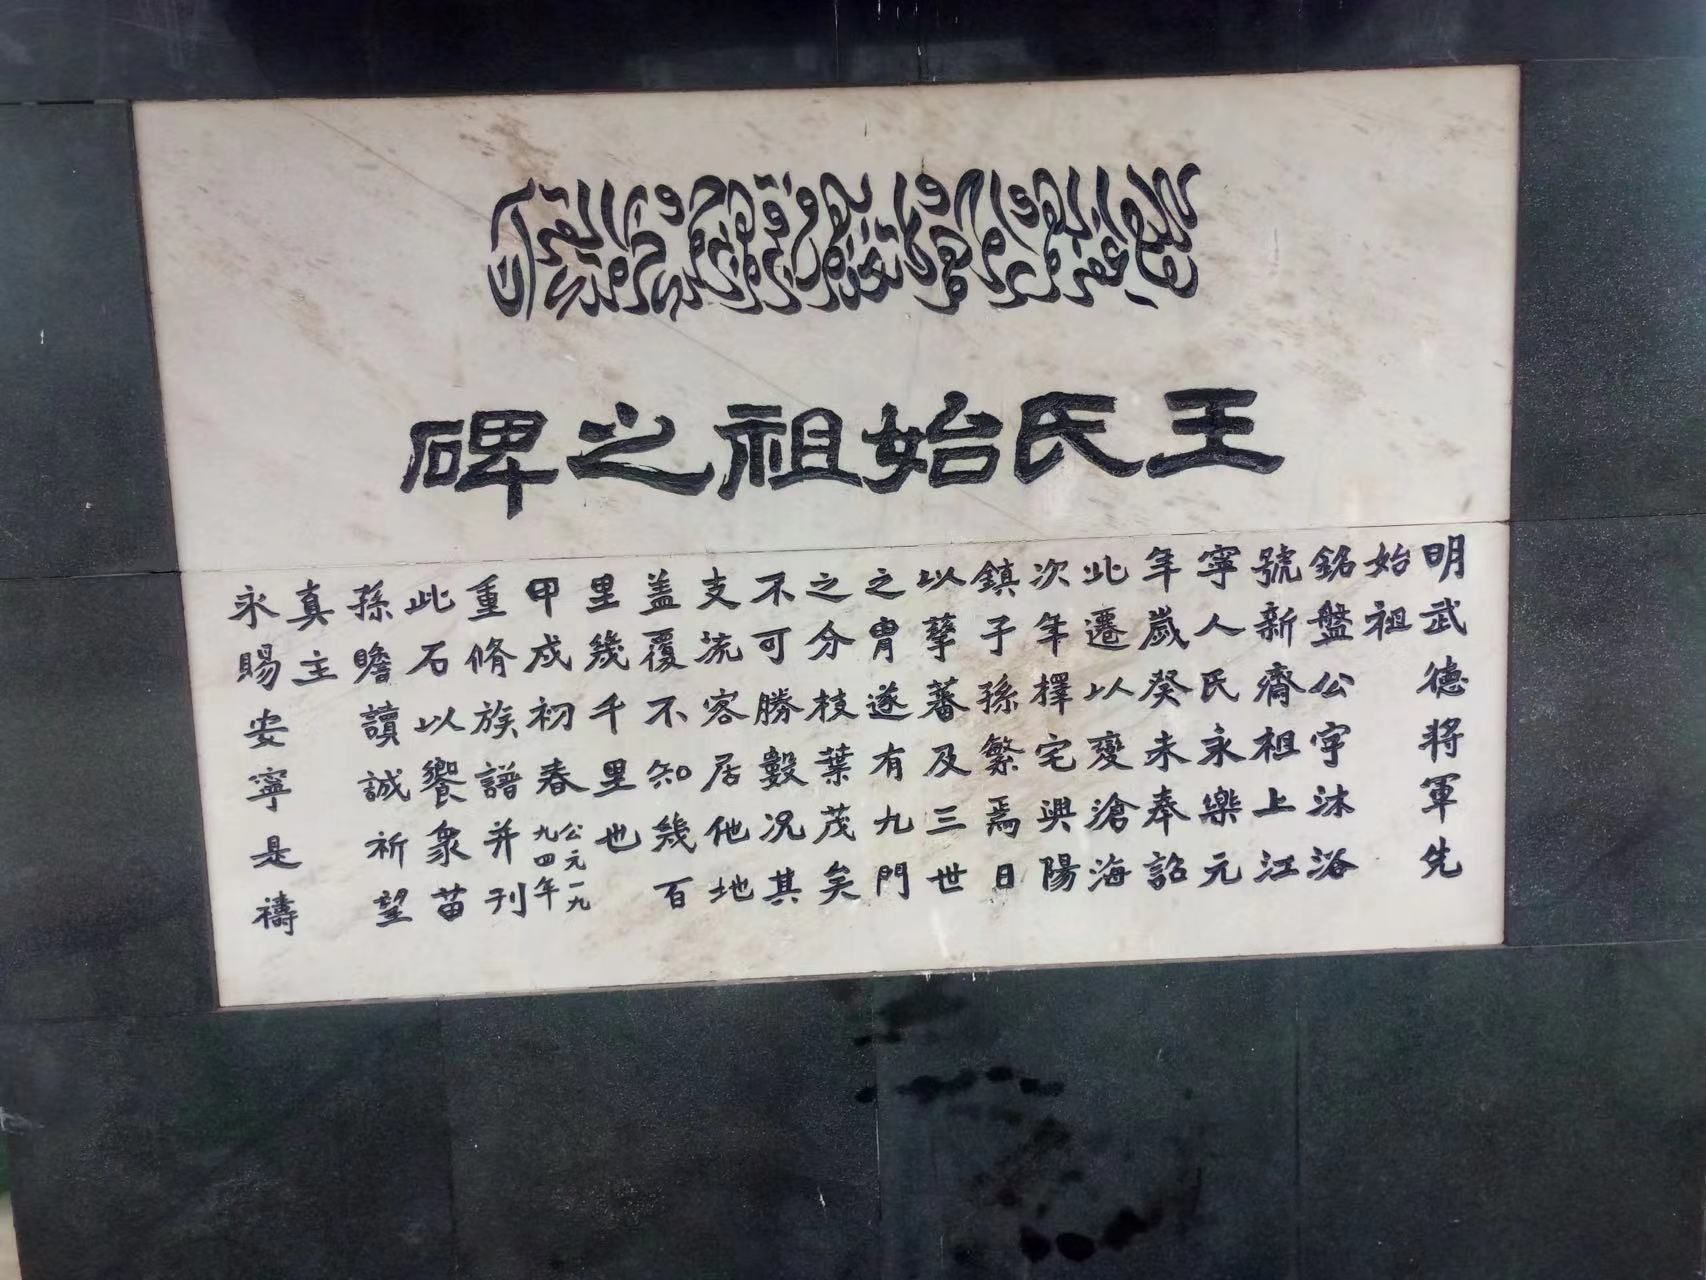 王氏始祖之碑
明武德將軍先
始祖
銘盤公字沐浴
號新齋祖上江
寧人氏永樂元
年歲癸未奉詔
此遷以變滄海
次年擇宅與陽
鎮子孫繁焉日
以孳蕃及三世
之胄遂有九門
之分枝葉茂矣
不可勝數况其
支流客居他地
蓋覆不知幾百
里幾千里也
甲戌初春公元一九九四年
重脩族譜并刊
此石以饗衆苗
孫瞻讀誠祈望
真主
永賜安寧是禱